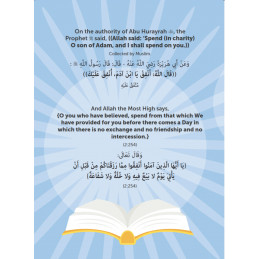 On the authority of Abu Hurayrah ﷺ, the
Prophet ﷺ said, ((Allah said: 'Spend (in charity)
O son of Adam, and I shall spend on you.))
Collected by Muslim.
وَعَنْ أَبِي هُرَيْرَةَ رَضِيَ اللَّهُ عَنْهُ - قَالَ: قَالَ رَسُولُ اللَّهِ ﷺ :
((قَالَ اللَّهُ: أَنْفِقْ يَا ابْنَ آدَمَ، أُنْفِقْ عَلَيْكَ))
مُتَّفَقٌ عَلَيْهِ
And Allah the Most High says,
(O you who have believed, spend from that which We
have provided for you before there comes a Day in
which there is no exchange and no friendship and no
intercession.)
(2:254)
وَقَالَ تَعَالَى:
(يَا أَيُّهَا الَّذِينَ آمَنُوا أَنْفِقُوا مِمَّا رَزَقْنَاكُمْ مِنْ قَبْلِ أَنْ
يَأْتِيَ يَوْمٌ لَا بَيْعٌ فِيهِ وَلَا خُلَّةٌ وَلَا شَفَاعَةٌ)
(2:254)